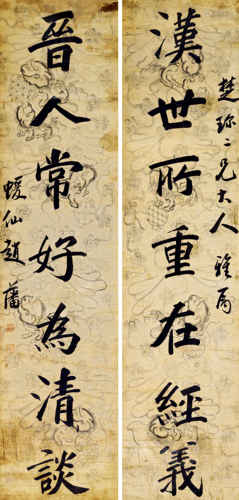 楚珎二兄大人雅属
漢世所重在經義
晉人常好為清談
蝯仙趙藩